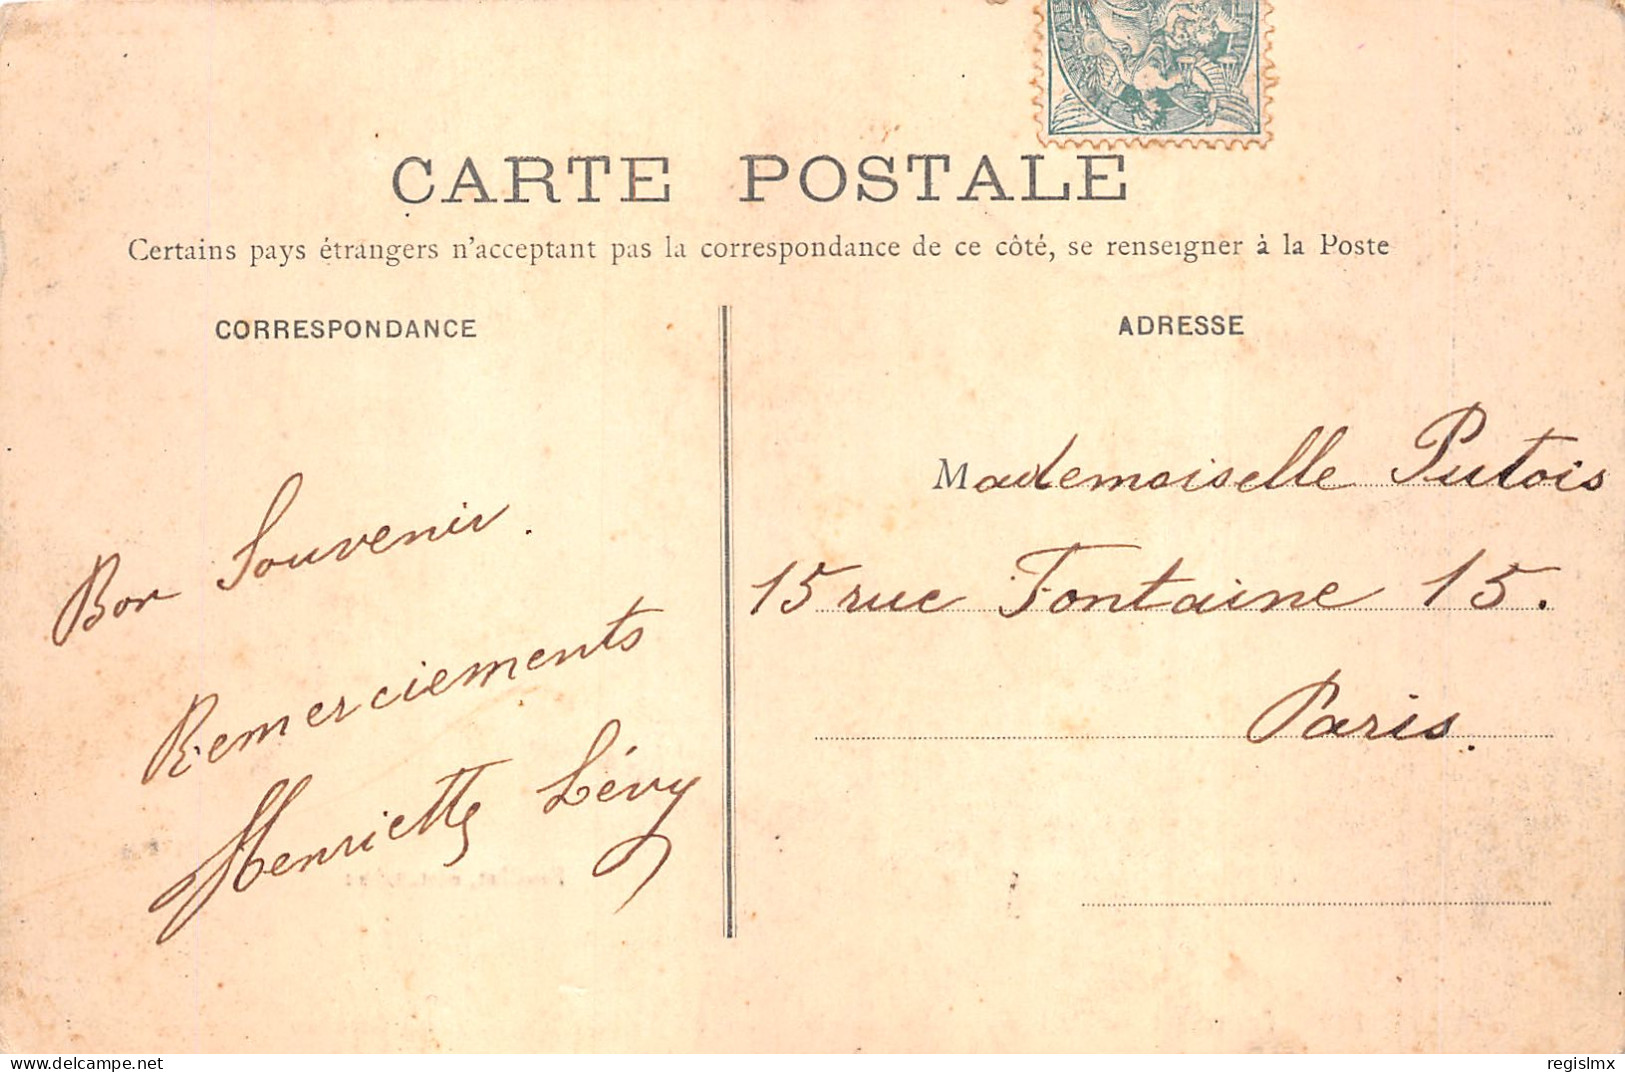 CARTE POSTALE
Certains pays étrangers n'acceptant pas la correspondance de ce côté, se renseigner à la Poste
CORRESPONDANCE
Bon Souvenir.
Remerciements
Henriette Lévy
ADRESSE
Mademoiselle Putois
15 rue Fontaine 15.
Paris.
delcampe.net
regislmx